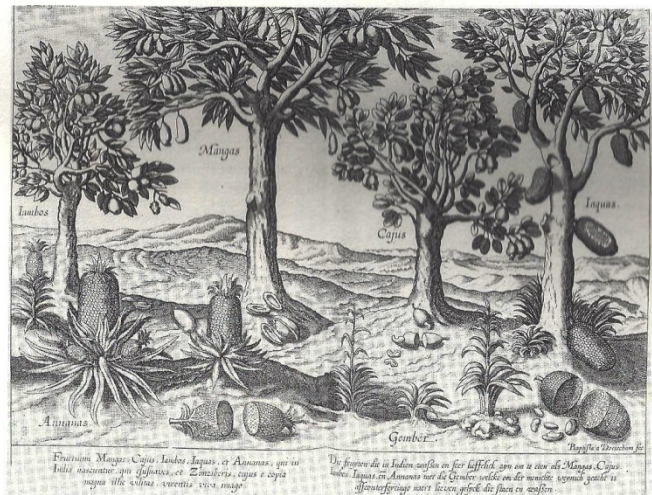 Mangas
Iambos
Iaquas.
Cajus
Annanas
Gember
Baptista a Doetechum fec
Fructuum Mangas, Cajus, Iambos, Iaquas, et Annanas, qui in
India nascuntur, qui et suaves, et Zinziberis, cujus e copia
magna illic vilitas virentis viva imago.
Die fruyten die in Indien wassen en seer lieffelick zyn om te eten als Mangas, Cajus,
Iambos, Iaquas, en Annanas met die Gember welcke om der menichte weynich geacht is
naert leeven gelyck die staen en wassen